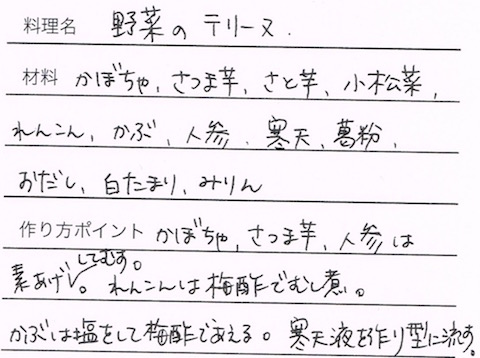 料理名 野菜のテリーヌ.
材料 かぼちゃ,さつま芋,さと芋,小松菜,
れんこん,かぶ,人参,寒天,葛粉,
おだし,白たまり,みりん
作り方ポイント かぼちゃ,さつま芋,人参は
してむす。
素あげ。れんこんは梅酢でむし煮。
かぶは塩をして梅酢であえる。寒天液を作り型に流す。